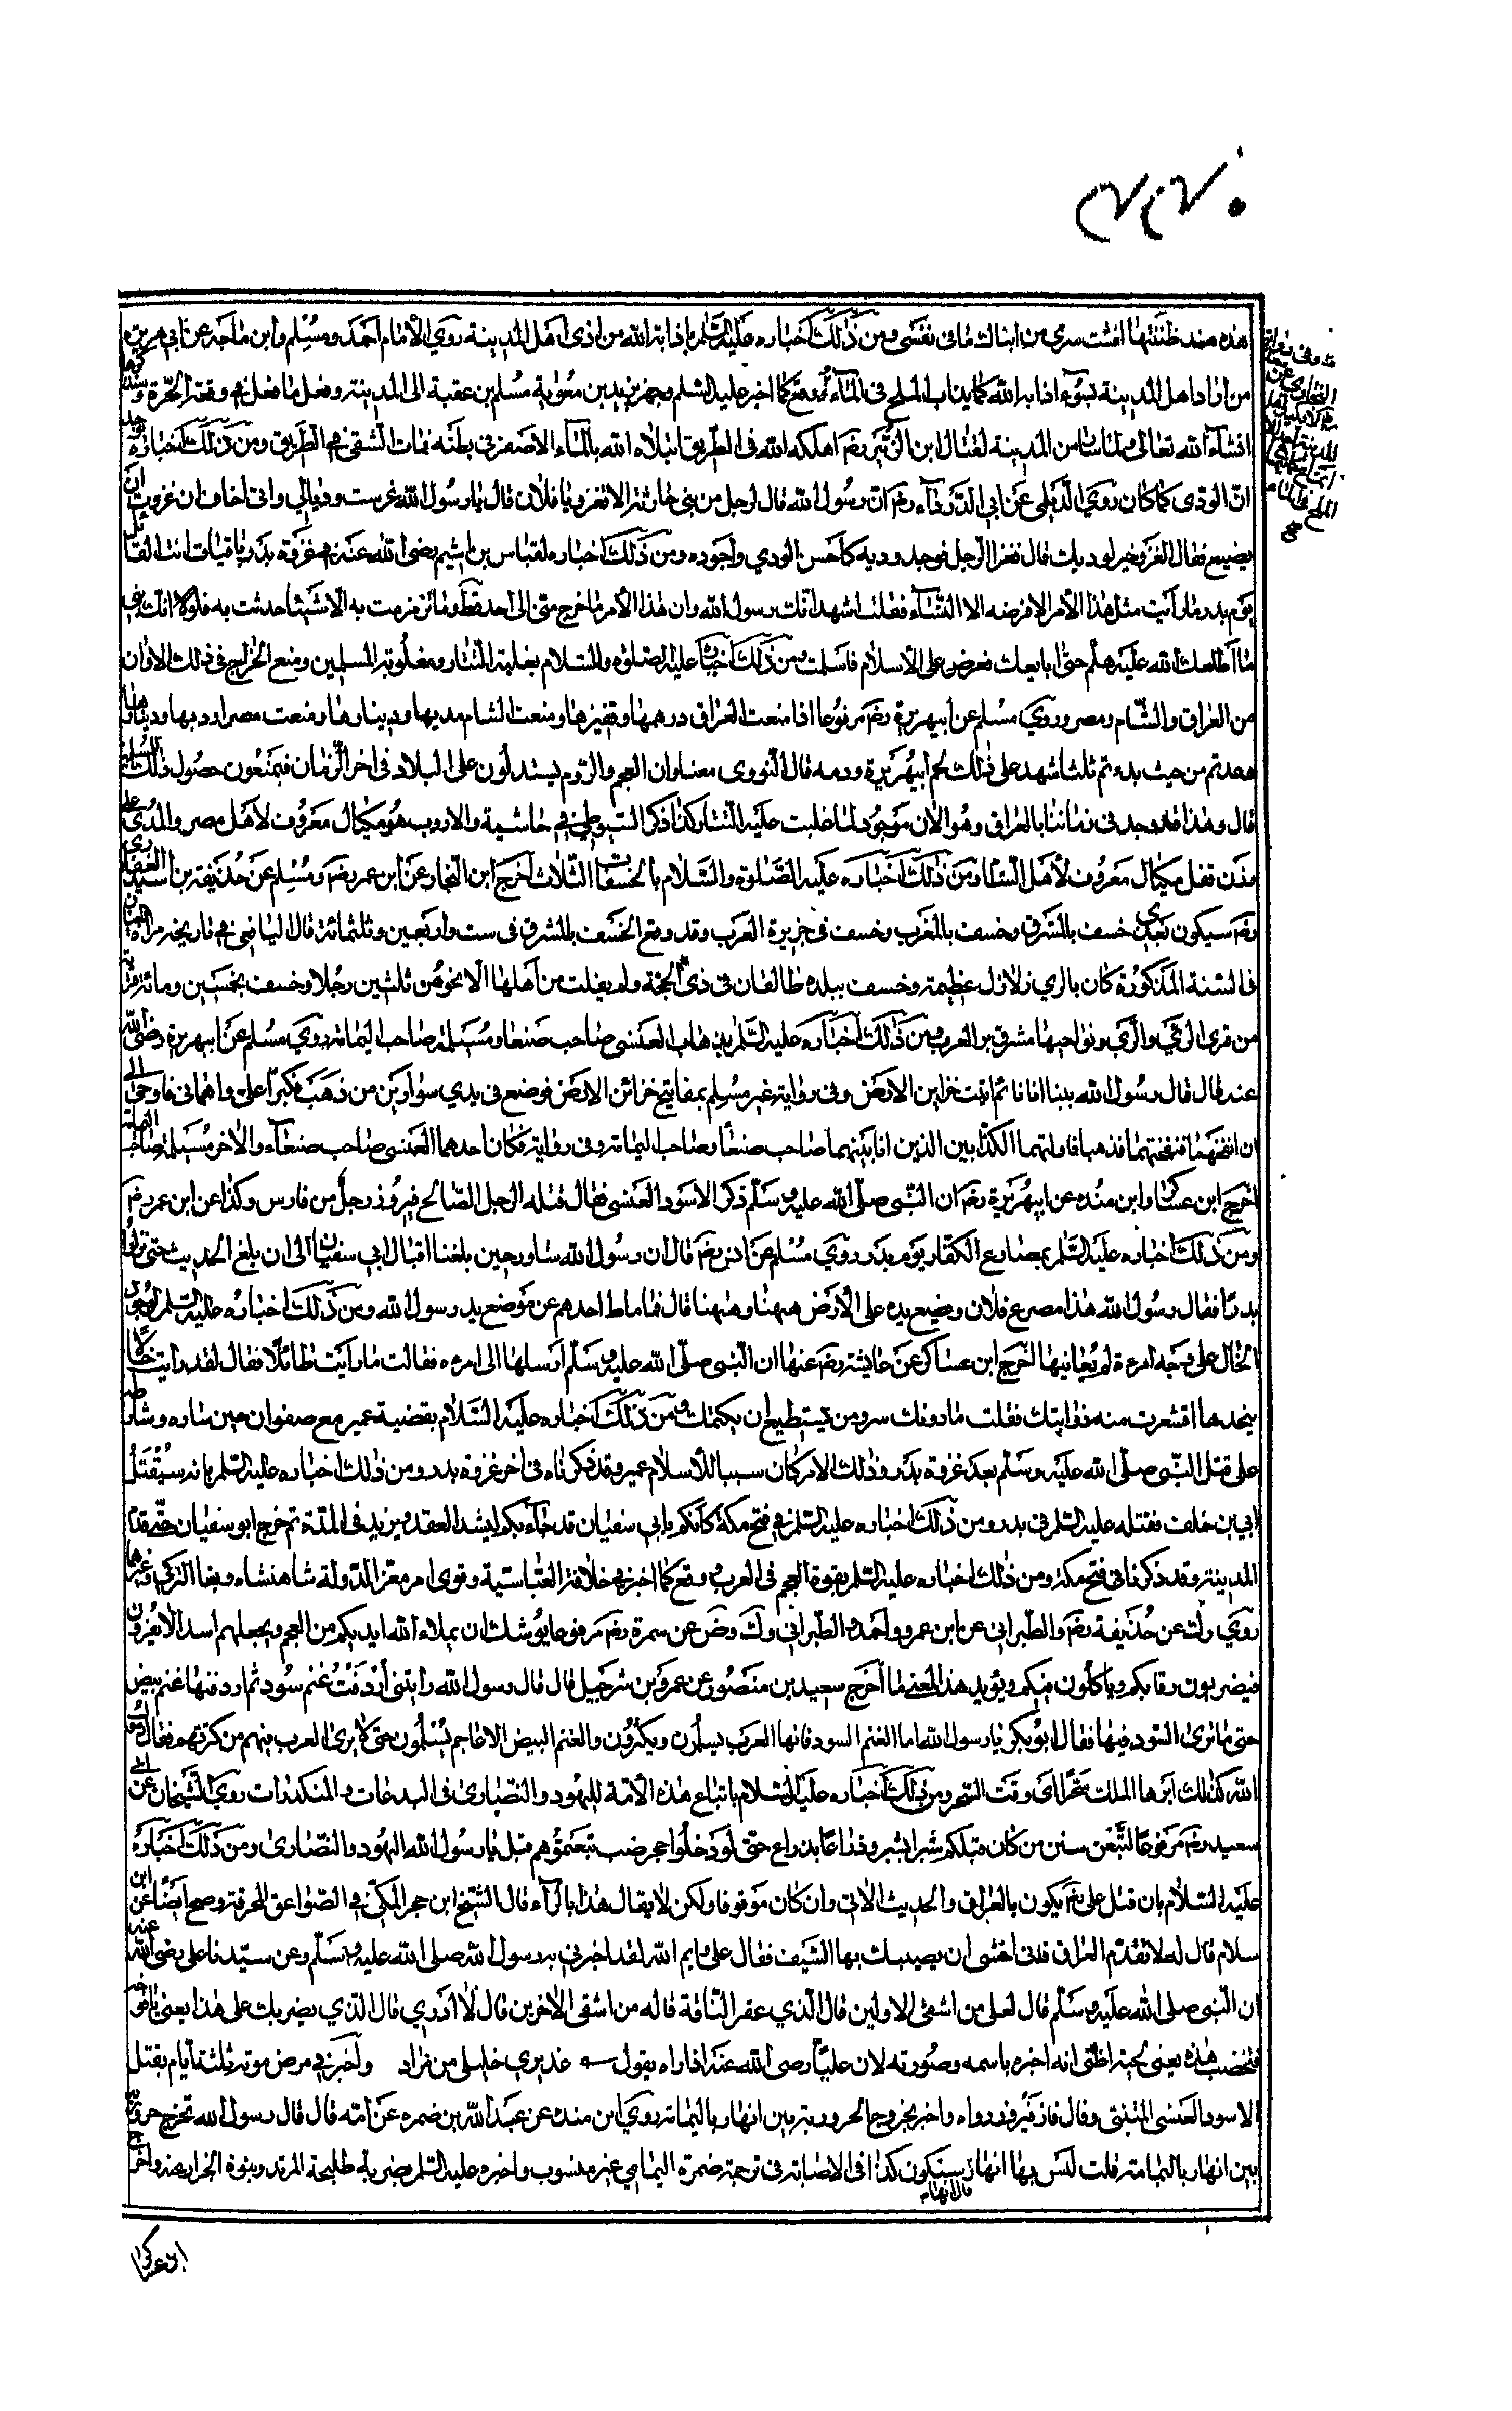 هذه هند ظننتها افشت سري من انبأك مافي نفسى ومن ذلك اخباره عليه السلم باذابة الله من اذى اهل المدينة روي الامام احمد ومسلم وابن ماجه عن ابي هريرة
من اراد اهل المدينة بسوء اذابه الله كما يذاب الملح في الماء وقد وقع كما اخبر عليه السلم جهز يزيد بن معوية مسلم بن عقبة الى المدينة وفعل ما فعل في وقعة الحرة
انشاء الله تعالى ولما سار من المدينة لقتال ابن الزبير رضم اهلكه الله في الطريق ابتلاه الله بالماء الاصفر في بطنه فمات الشقي في الطريق ومن ذلك اخباره
ان الودى كما كان روي الديلمى عن ابي الدرداء رضم ان رسول الله قال لرجل من بني حارثة الا تغزو يا فلان قال يا رسول الله غرست وديالي واني اخاف ان غزوت ان
يضيع فقال الغزو خير لوديك قال فغزا الرجل فوجد وديه كأحسن الودي واجوده ومن ذلك اخباره لقباس بن اشيم رضى الله عنه في غزوة بدر يا قباث انت القائل
يوم بدر ما رأيت مثل هذا الأمر الا فر منه الا النساء فقلت اشهد انك رسول الله وان هذا الأمر ما خرج منى الى احد قط وما تزمزمت به الا شيئا حدثت به فلولا انك نبي
ما اطلعك الله عليه هلم حتى ابايعك فعرض على الاسلام فاسلمت ومن ذلك اخباره عليه الصلوة والسلام بغلبة التتار ومغلوبة المسلمين ومنع الخراج في ذلك الاوان
من العراق والشام ومصر وروي مسلم عن ابيهريرة رضم مرفوعا اذا منعت العراق درهمها وقفيزها ومنعت الشام مديها ودينارها ومنعت مصر اردبها ودينارها
وعدتم من حيث بدءتم ثلثا شهد على ذلك لحم ابيهريرة ودمه قال النووى معناه ان العجم والروم يستدلون على البلاد في اخر الزمان فيمنعون حصول ذلك للمسلمين
قال وهذا قد وجد في زماننا بالعراق وهو الان موجود لما غلبت عليه التتار كذا ذكر السيوطي في حاشيه والاردب هو مكيال معروف لأهل مصر والمدى على
وزن قفل مكيال معروف لأهل الشام ومن ذلك اخباره عليه الصلوة والسلام بالخسفات الثلاث اخرج ابن النجار عن ابن عمر رضم ومسلم عن حذيفة بن اسيد الغفارى
رضم سيكون بعدى خسف بالمشرق وخسف بالمغرب وخسف في جزيرة العرب وقد وقع الخسف بالمشرق في ست واربعين وثلثمائة قال اليافعى في تاريخه مراة الجنان
في السنة المذكورة كان بالري زلازل عظيمة وخسف ببلده طالقان في ذى الحجة ولم يفلت من اهلها الا نحو من ثلثين رجلا وخسف بخمسين ومائة قرية
من قرى الري والري ونواحيها مشرق بر العرب ومن ذلك اخباره عليه السلم بذهاب العنسى صاحب صنعا ومسيلمة صاحب اليمامة روي مسلم عن ابيهريرة رضى الله
عنه قال قال رسول الله بينا انا نائم اتيت خزاين الارض وفي رواية غير مسلم بمفاتيح خزائن الارض فوضع في يدي سوارين من ذهب فكبرا على واهماني فاوحى الى
ان انفخهما فنفختهما فذهبا فاولتهما الكذابين الذين انا بينهما صاحب صنعا وصاحب اليمامة وفي رواية فكان احدهما العنسى صاحب صنعاء والاخر مسيلمة صاحب اليمامة
اخرج ابن عساكر وابن منده عن ابيهريرة رضم ان النبى صلى الله عليه وسلم ذكر الاسود العنسى فقال قتله الرجل الصالح فيروز رجل من فارس وكذا عن ابن عمر رضم
ومن ذلك اخباره عليه السلم بمصارع الكفار يوم بدر روي مسلم عن انس رضم قال ان رسول الله شاور حين بلغنا اقبال ابي سفيان الى ان بلغ الحديث حتى نزلوا
بدرا فقال رسول الله هذا مصرع فلان ويضع يده على الارض ههنا وههنا قال فما ماط احدهم عن موضع يد رسول الله ومن ذلك اخباره عليه السلم بوجود
الخال على وجه امرءة لم يعاينها اخرج ابن عساكر عن عايشة رضم عنها ان النبى صلى الله عليه وسلم ارسلها الى امرءه فقالت ما رأيت طائلا فقال لقد رايت خالا
بخدها اقشعرت منه ذوابتك فقلت مادونك سر ومن يستطيع ان يكتمك ومن ذلك اخباره عليه السلام بقضية عمير مع صفوان حين ساره وشاطره
على قتل النبى صلى الله عليه وسلم بعد غزوة بدر وذلك الامر كان سببا للاسلام عمير وقد ذكرناه في اخر غزوة بدر ومن ذلك اخباره عليه السلم بانه سيقتل
ابي بن خلف فقتله عليه السلم في بدر ومن ذلك اخباره عليه السلم في فتح مكة كأنكم بابي سفيان قد جاءكم ليشد العقد ويزيد في المدة ثم خرج ابو سفيان حتى قدم
المدينة وقد ذكرنا في فتح مكة ومن ذلك اخباره عليه السلم بقوة العجم في العرب ووقع كما اخبر في خلافة العباسية وقوى امر معز الدولة شاهنشاه وبغا التركي وغيرهما
روي رك عن حذيفة رضم والطبراني عن ابن عمرو واحمد والطبراني وك وض عن سمرة رضم مرفوعا يوشك ان يملاء الله ايديكم من العجم ويجعلهم اسدا لا يفرون
فيضربون رقابكم وياكلون فيئكم ويؤيد هذا المعنى ما اخرج سعيد بن منصور عن عمرو بن شرحبيل قال قال رسول الله رايتني اردفت غنم سود ثم اردفتها غنم بيض
حتى ما ترى السود فيها فقال ابو بكر يا رسول الله اما الغنم السود فانها العرب يسلمون ويكثرون والغنم البيض الاعاجم يسلمون حتى لا يرى العرب فيهم من كثرتهم فقال رسول
الله كذلك ابرها الملك سحرا اى وقت السحر ومن ذلك اخباره عليه السلام باتباع هذه الأمة لليهود والنصارى في البدعات والمنكرات روي الشيخان عن ابي
سعيد رضم مرفوعا لتتبعن سنن من كان قبلكم شبرا بشبر وذراعا بذراع حتى لو دخلوا حجر ضب تبعتموهم قيل يا رسول الله اليهود والنصارى ومن ذلك اخباره
عليه السلام بان قتل على رضم يكون بالعراق والحديث الاتي وان كان موقوفا ولكن لا يقال هذا بالرأء قال الشيخ ابن حجر المكى في الصواعق المحرقة وصح ايضا عن ابن
سلام قال له لا تقدم العراق فاني اخشى ان يصيبك بها السيف فقال على وايم الله لقد اخبرني به رسول الله صلى الله عليه وسلم وعن سيدنا على رضى الله عنه
ان النبى صلى الله عليه وسلم قال لعلى من اشقى الاولين قال الذي عقر الناقة قال فمن اشقى الاخرين قال لا ادري قال الذي يضربك على هذا يعنى يافوخه
فتخضب هذه يعنى لحيته اظنى انه اخبره باسمه وصورته لان عليا رضى الله عنه اذا راه يقول غديري خليلي من مراد واخبر في مرض موته ثلثة ايام بقتل
الاسود العنسى المتنبى وقال فاز فيروز رواه واخبر بخروج الحرورية بين انهار باليمامة روي ابن منده عن عبد الله بن ضمره عن امه قال قال رسول الله تخرج حرورية
بين انهار باليمامة قلت ليس بها انهار قال انها سيكون كذا في الاصابة في ترجمة ضمرة اليمامي غير منسوب واخبره عليه السلم بضربة طليحة المرتد وبنوة الخرابعنه واخرج
ابن عساكر